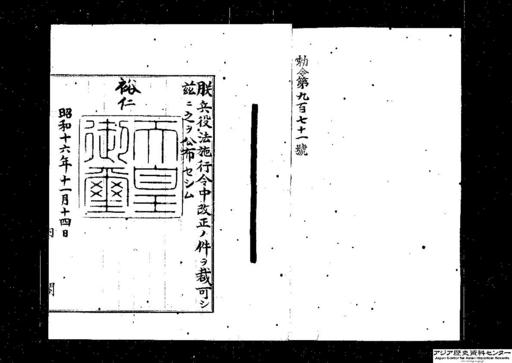 勅令第九百七十一號
朕兵役法施行令中改正ノ件ヲ裁可シ
茲ニ之ヲ公布セシム
裕仁
天皇
御璽
昭和十六年十一月十四日
内閣
アジア歴史資料センター
Japan Center for Asian Historical Records